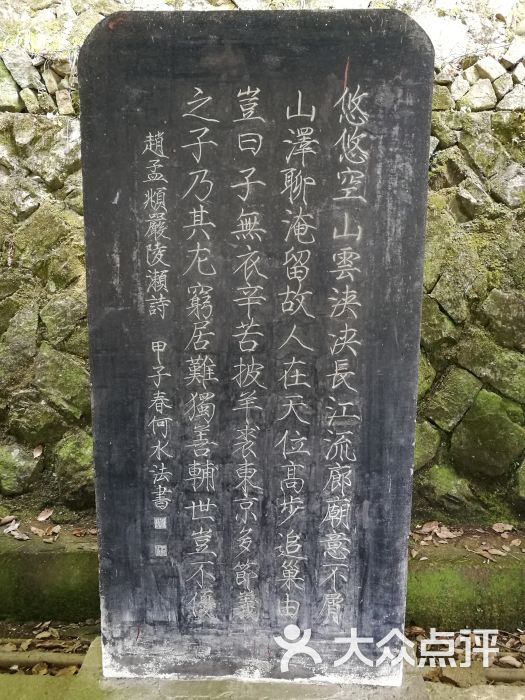 悠悠空山雲泱泱長江流廊廟意不屑
山澤聊淹留故人在天位高步追巢由
豈曰子無衣辛苦披羊裘東京多節義
之子乃其尤窮居難獨善輔世豈不優
趙孟頫嚴陵瀨詩 甲子春何水法書
大众点评